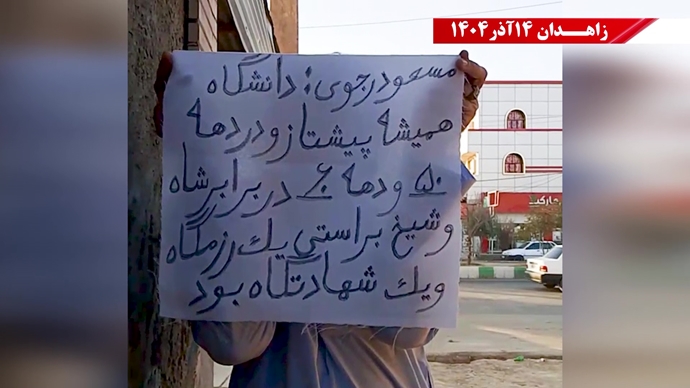 زاهدان ۱۴آذر۱۴۰۴
مسعود رجوی: دانشگاه
همیشه پیشتاز و در دهه
۵۰ و دهه ۶۰ در برابر شاه
و شیخ براستی یك رزمگاه
و یك شهادتگاه بود
مارکت